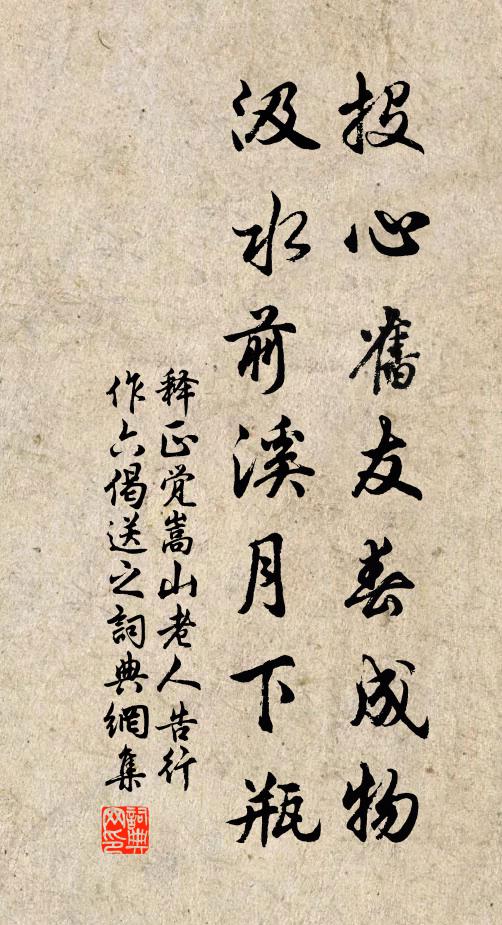 投心舊友春成物
汲水前溪月下瓶
释正觉嵩山老人告行
作六偈送之詞典網集
詞典
网印